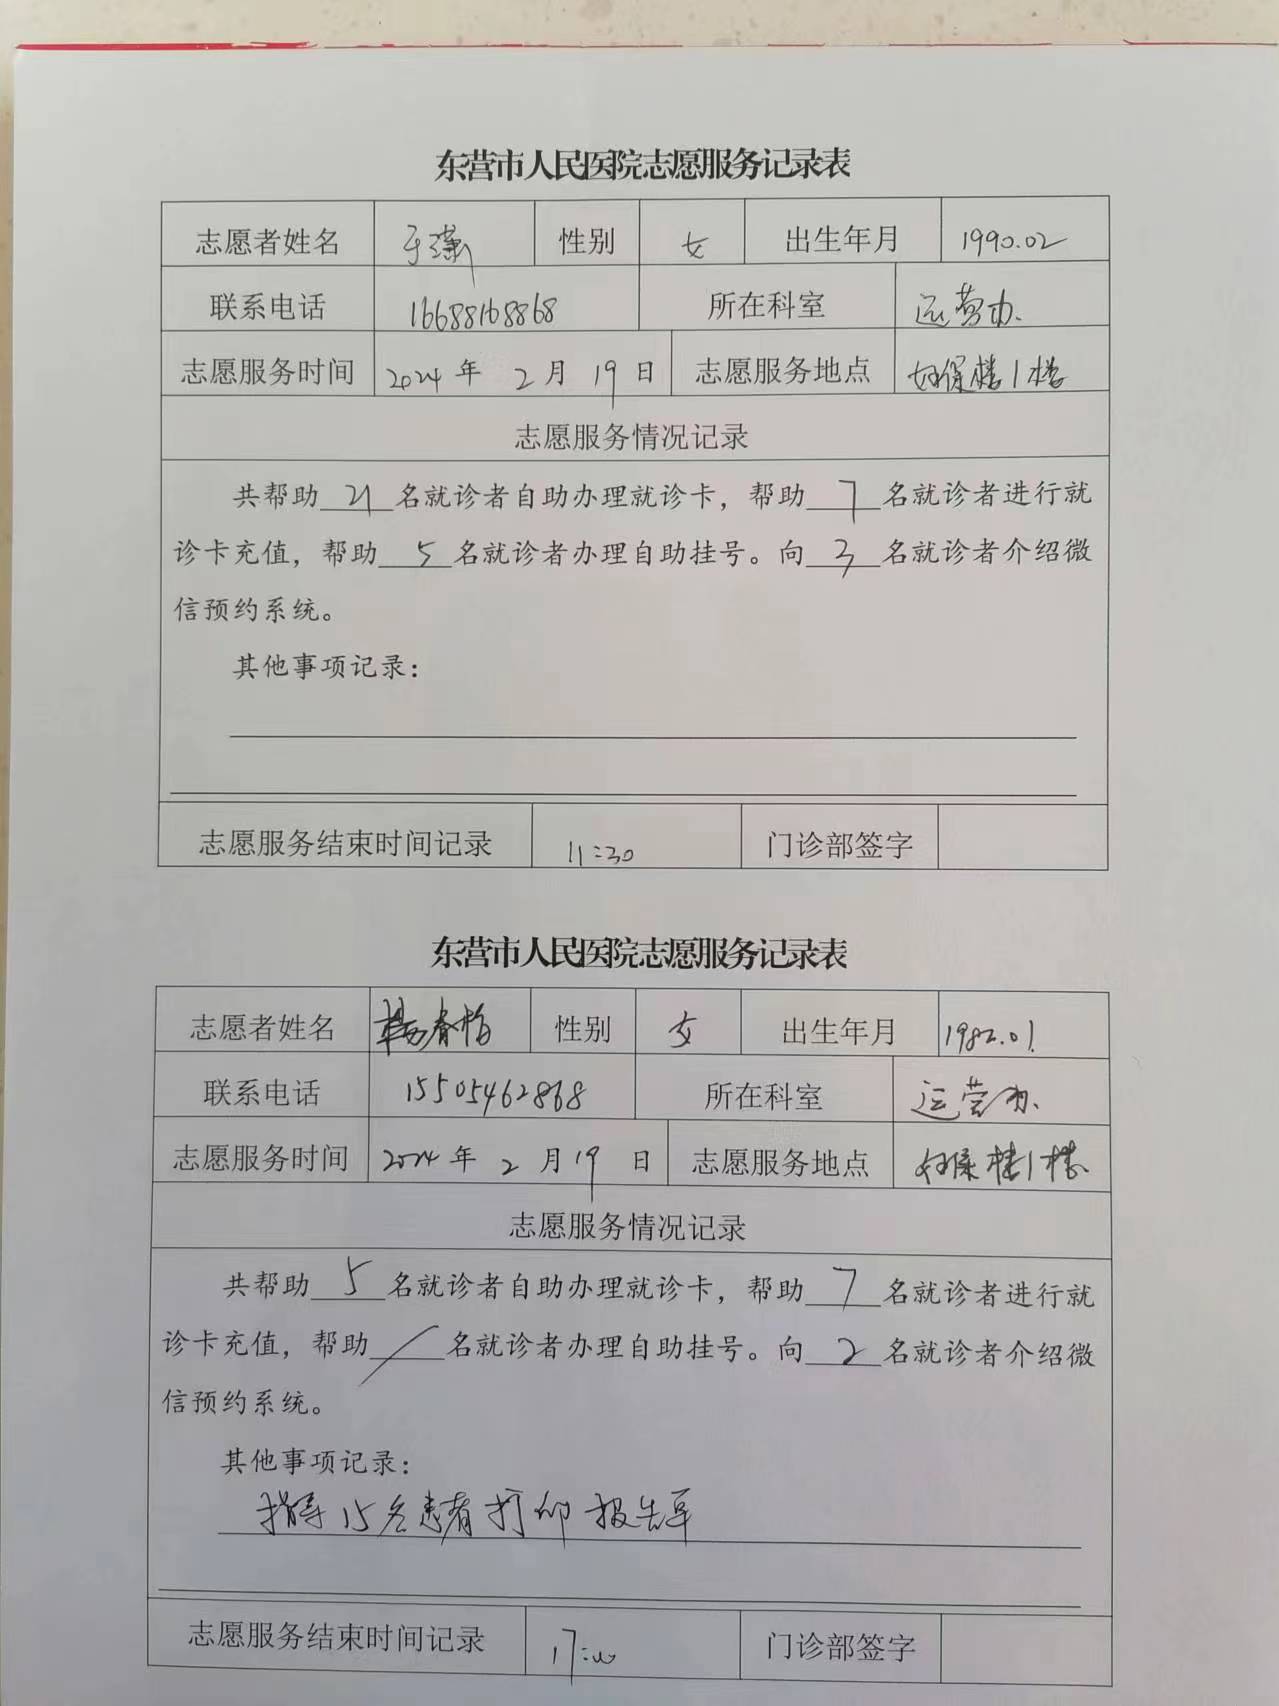 东营市人民医院志愿服务记录表
志愿者姓名 于潇 性别 女 出生年月 1990.02
联系电话 16688168868 所在科室 运营办
志愿服务时间 2024年 2月 19日 志愿服务地点 妇保楼1楼
志愿服务情况记录
共帮助21名就诊者自助办理就诊卡，帮助7名就诊者进行就
诊卡充值，帮助5名就诊者办理自助挂号。向3名就诊者介绍微
信预约系统。
其他事项记录：
志愿服务结束时间记录 11:30 门诊部签字
东营市人民医院志愿服务记录表
志愿者姓名 性别 女 出生年月 1982.01
联系电话 15505462868 所在科室 运营办
志愿服务时间 2024年 2月 19日 志愿服务地点 妇保楼1楼
志愿服务情况记录
共帮助5名就诊者自助办理就诊卡，帮助7名就诊者进行就
诊卡充值，帮助/名就诊者办理自助挂号。向2名就诊者介绍微
信预约系统。
其他事项记录：
指导15名患者打印报告单
志愿服务结束时间记录 17:00 门诊部签字